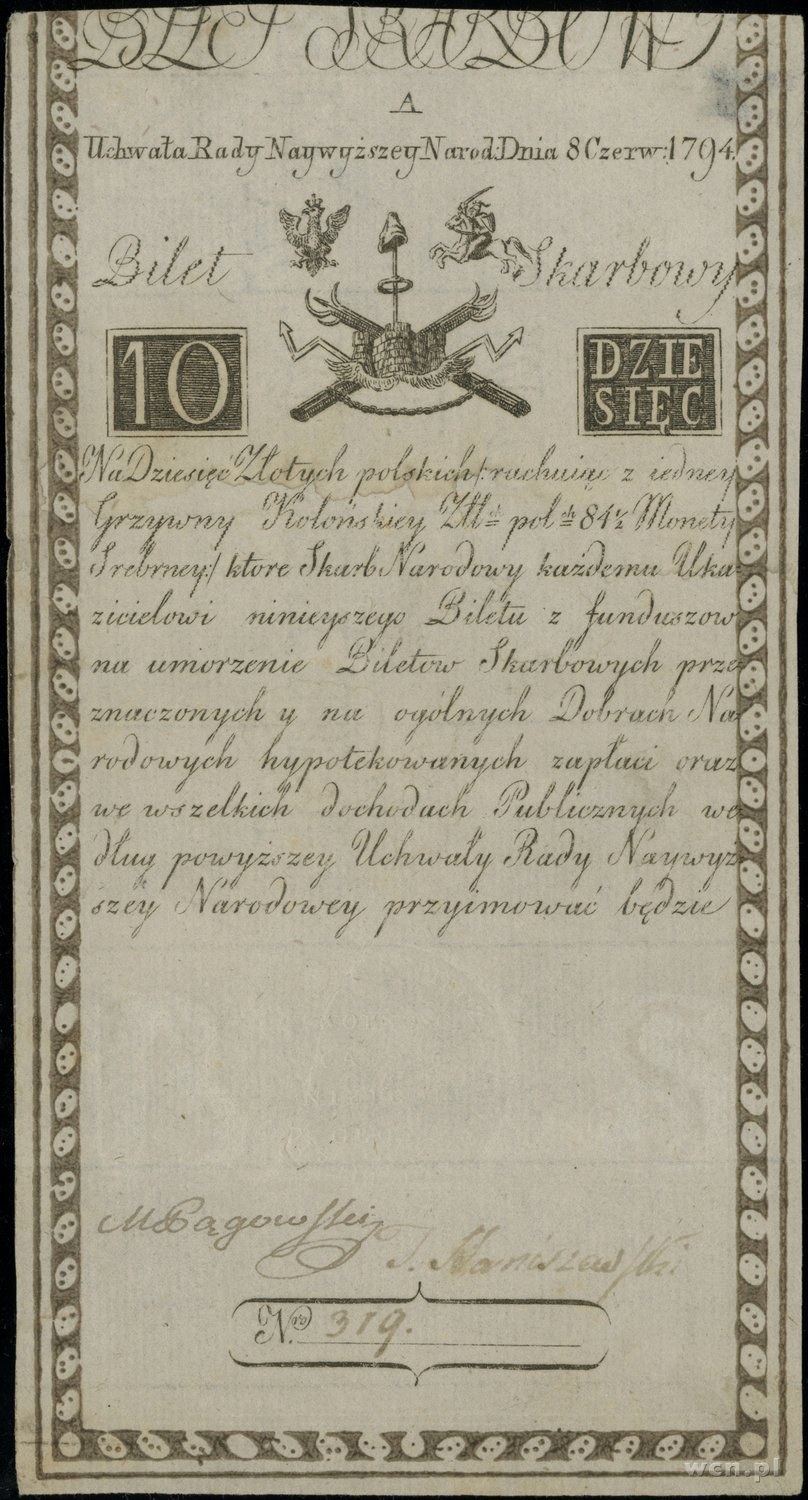 BILET SKARBOWY
A
Uchwała Rady Naywyższey Narod: Dnia 8 Czerw: 1794.
Bilet Skarbowy
10
DZIE
SIĘC
Na Dziesięć Złotych polskich /: rachuiąc z iedney
Grzywny Kolońskiey Złł: pol: 84½ Monety
Srebrney :/ ktore Skarb Narodowy każdemu Uka-
zicielowi ninieyszego Biletu z funduszow
na umorzenie Biletow Skarbowych prze-
znaczonych y na ogólnych Dobrach Na-
rodowych hypotekowanych zapłaci oraz
we wszelkich dochodach Publicznych we-
dług powyższey Uchwały Rady Naywyż-
szey Narodowey przyimować będzie
M Pągowski
J. Staniszewski
Nro 319.
wcn.pl